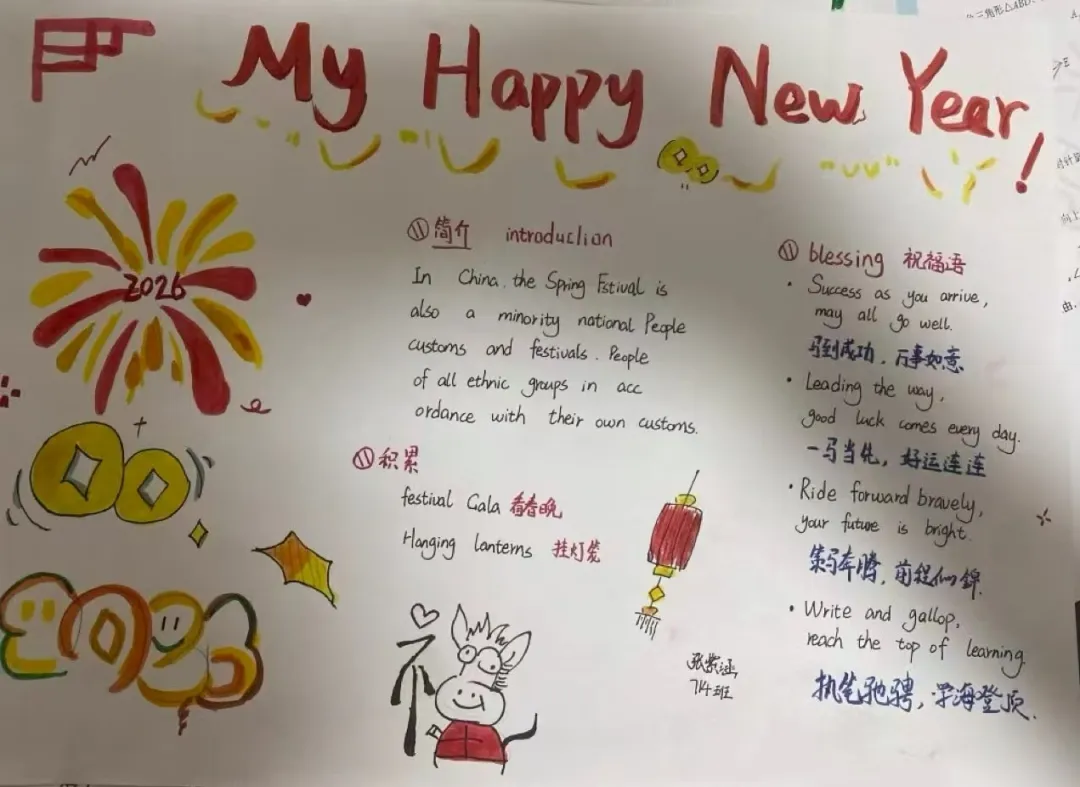 My Happy New Year!
2026
简介 introduction
In China, the Spring Estival is
also a minority national People
customs and festivals. People
of all ethnic groups in acc
ordance with their own customs.
积累
festival Gala 看春晚
Hanging lanterns 挂灯笼
blessing 祝福语
· Success as you arrive,
may all go well.
马到成功，万事如意
· Leading the way,
good luck comes every day.
一马当先，好运连连
· Ride forward bravely,
your future is bright.
策马奔腾，前程似锦.
· Write and gallop,
reach the top of learning.
执笔驰骋，学海登顶.
714班
2026